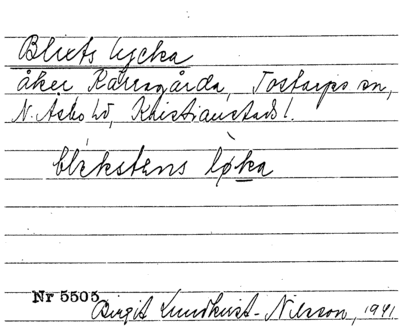 Blixts lycka
åker Rållagårda, Tostarps sn,
N. Åsbo hd, Kristianstads l.
blekstens løka
Nr 5505
Birgit Lundkvist-Nilsson, 1941.